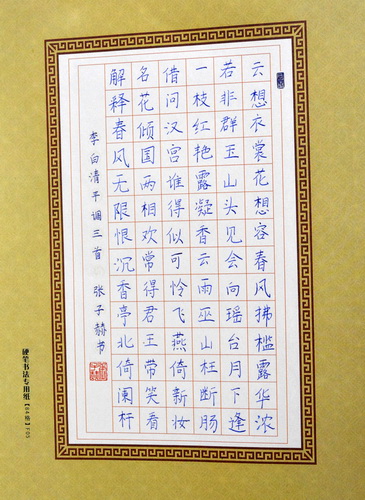 云想衣裳花想容春风拂槛露华浓
若非群玉山头见会向瑶台月下逢
一枝红艳露凝香云雨巫山枉断肠
借问汉宫谁得似可怜飞燕倚新妆
名花倾国两相欢常得君王带笑看
解释春风无限恨沉香亭北倚阑杆
李白清平调三首 张子赫书
硬笔书法专用纸【84格】F05